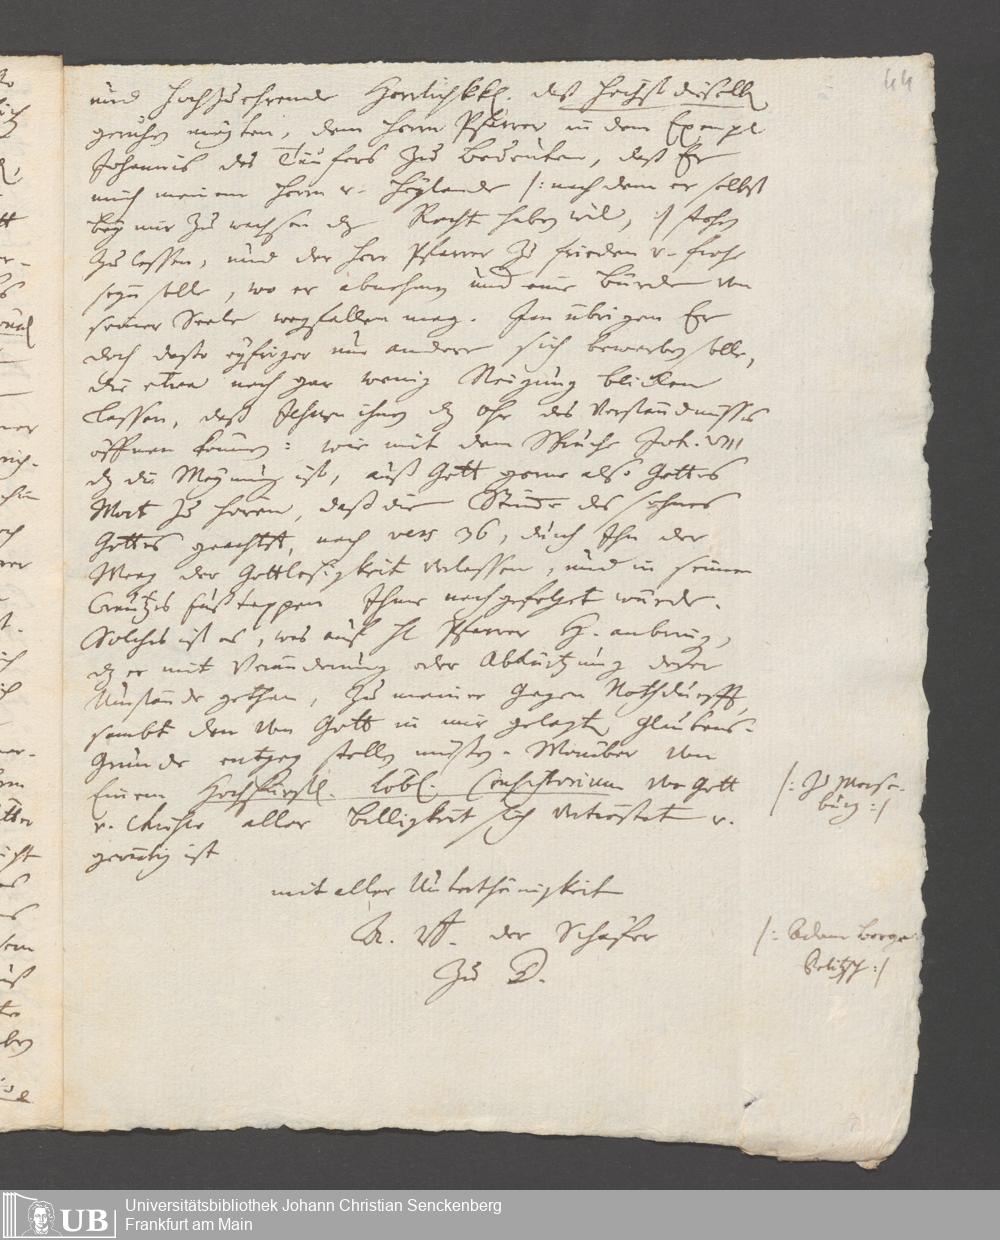 44
und hochzuehrende Herrlichkk. daß höchst dieselb
geruhen möchten, dem Herrn Pfarrer in dem Exempl
Johannis des Täufers zu bedeuten, daß Er
mich meinem Herrn v. Heylande /: nach dem er selbst
bey mir zu wachsen dz Recht haben wil, :/ stehen
zu lassen, und der Herr Pfarrer zu frieden v. froh
seyn solle, wo er abnehmen und eine Bürde von
seiner Seele wegfallen mag. Im übrigen Er
doch desto eyfriger um andere sich bewerben solle,
die etwa noch gar wenig Neigung blicken
lassen, daß ihnen dz Ohr des Verständnisses
öffnen können: wie mit dem Spruche Joh. VIII
dz die Meynung ist, auß Gott gerne also Gottes
Wort zu hören, daß die Stimme des Sohnes
Gottes geachtet, nach vers 36, durch Ihn der
Weeg der Gottlosigkeit verlassen, und in seinen
Creutzes Fußtappen Ihme nachgefolget würde.
Solches ist es, was auf H. Pfarrer H. anbring,
dz er mit Veränderung oder Abkürtzung derer
Umstände gethan, zu meiner Gegen Nothdurfft,
sambt den von Gott in mir gelegten Glaubens-
Gründe entgeg stellen müßen. Worüber von
Einem Hochfürstl. Löbl. Consistorium von Gott
v. Christo aller Billigkeit sich vertröstet v.
gewärtig ist
/: zu Merse-
burg :/
mit aller Unterthänigkeit
der Schäfer
zu D.
/: Adam
Universitätsbibliothek Johann Christian Senckenberg
Frankfurt am Main
UB